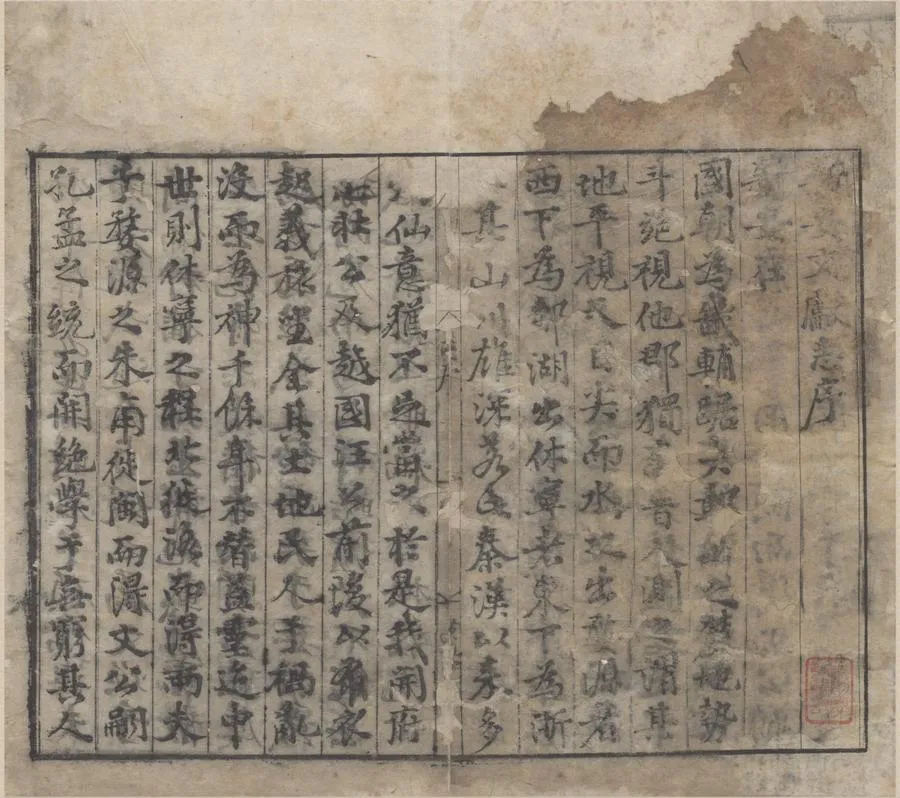 文獻志序
國朝為畿輔踞大鄣山之麓地勢
斗絕視他郡獨高昔人測之謂其
地平視天目尖而水之出婺源者
西下為鄱湖出休寧者東下為浙
其山川雄深若此秦漢以來多
仙意猶不足當之於是我開府
忠壯公及越國汪公前後以布衣
起義旅坐全其土地民人于禍亂
沒而為神千餘年不替益靈迨中
世則休寧之程北徙洛而得兩夫
子婺源之朱南徙閩而得文公嗣
孔孟之統而開絕學于無窮其人